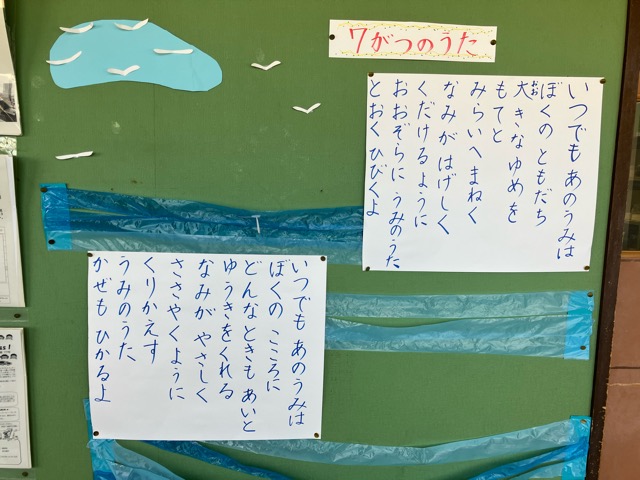 7がつのうた
いつでも あのうみは
ぼくの ともだち
大きな ゆめを
おお
もてと
みらいへ まねく
なみが はげしく
くだけるように
おおぞらに うみのうた
とおく ひびくよ
いつでも あのうみは
ぼくの こころに
どんなときも あいと
ゆうきをくれる
なみが やさしく
ささやくように
くりかえす
うみのうた
かぜも ひかるよ